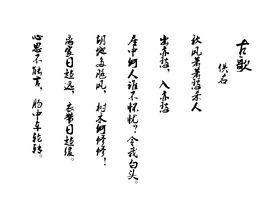 古歌
佚名
秋风萧萧愁杀人
出亦愁，入亦愁
座中何人谁不怀忧？令我白头。
胡地多飚风，树木何修修！
离家日趋远，衣带日趋缓。
心思不能言，肠中车轮转。